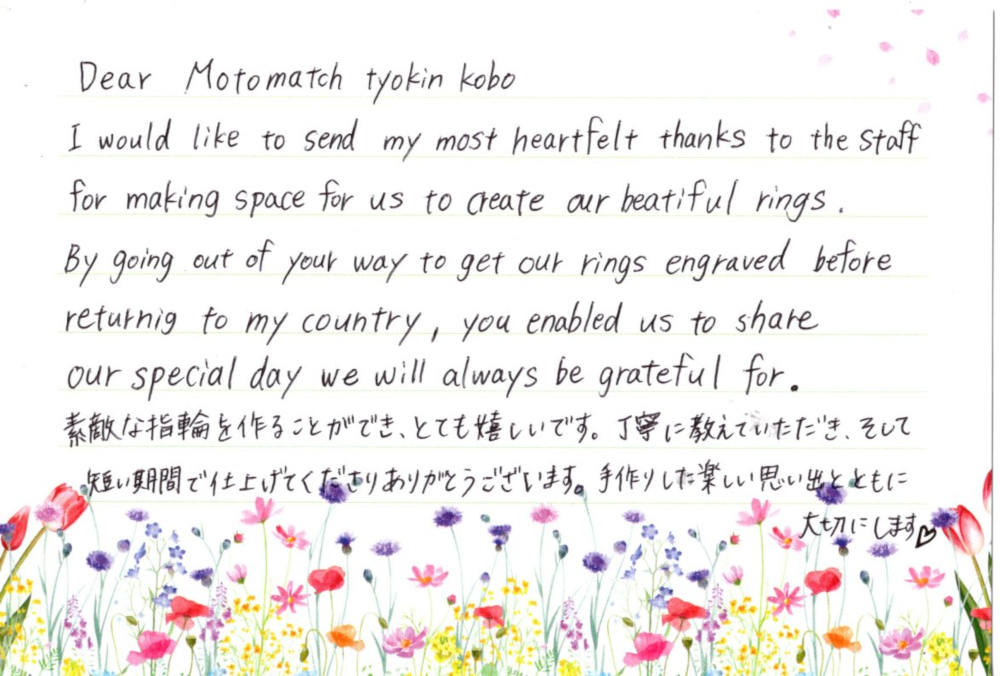 Dear Motomatch tyokin kobo
I would like to send my most heartfelt thanks to the staff
for making space for us to create our beatiful rings.
By going out of your way to get our rings engraved before
returnig to my country, you enabled us to share
our special day we will always be grateful for.
素敵な指輪を作ることができ、とても嬉しいです。丁寧に教えていただき、そして
短い期間で仕上げてくださりありがとうございます。手作りした楽しい思い出とともに
大切にします♡